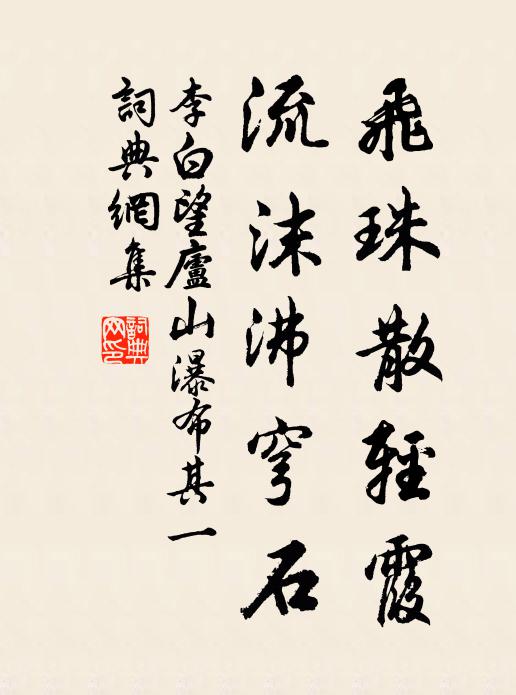 飛珠散輕霞
流沫沸穹石
李白望廬山瀑布其一
詞典網集
詞典網印